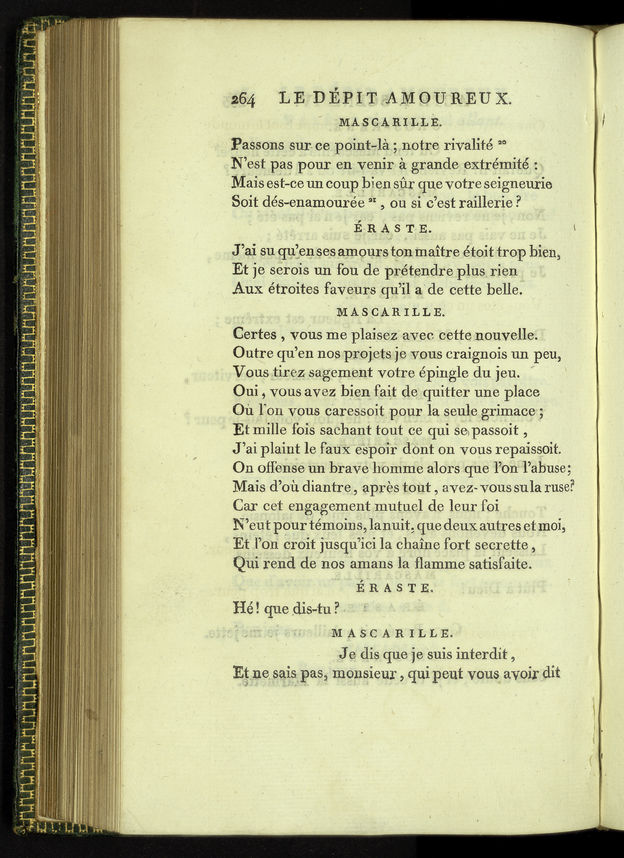 264 LE DÉPIT AMOUREUX.
MASCARILLE.
Passons sur ce point-là ; notre rivalité 20
N'est pas pour en venir à grande extrémité :
Mais est-ce un coup bien sûr que votre seigneurie
Soit dés-enamourée 21, ou si c'est raillerie ?
ÉRASTE.
J'ai su qu'en ses amours ton maître étoit trop bien,
Et je serois un fou de prétendre plus rien
Aux étroites faveurs qu'il a de cette belle.
MASCARILLE.
Certes, vous me plaisez avec cette nouvelle.
Outre qu'en nos projets je vous craignois un peu,
Vous tirez sagement votre épingle du jeu.
Oui, vous avez bien fait de quitter une place
Où l'on vous caressoit pour la seule grimace ;
Et mille fois sachant tout ce qui se passoit,
J'ai plaint le faux espoir dont on vous repaissoit.
On offense un brave homme alors que l'on l'abuse ;
Mais d'où diantre, après tout, avez-vous su la ruse ?
Car cet engagement mutuel de leur foi
N'eut pour témoins, la nuit, que deux autres et moi,
Et l'on croit jusqu'ici la chaîne fort secrette,
Qui rend de nos amans la flamme satisfaite.
ÉRASTE.
Hé ! que dis-tu ?
MASCARILLE.
Je dis que je suis interdit,
Et ne sais pas, monsieur, qui peut vous avoir dit